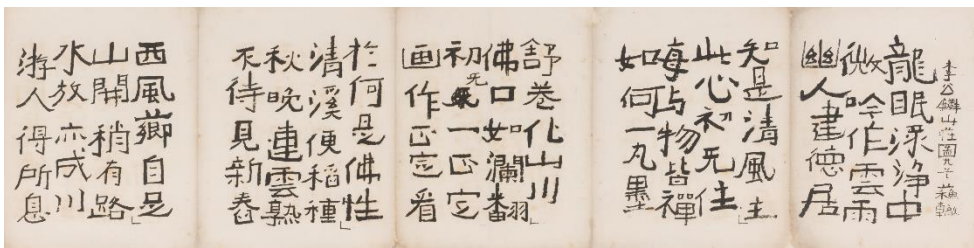 李公麟山莊圖
龍眠渌净中
微吟作雲雨
幽人建德居
知是清風主」
此心初无住
每与物皆禪
如何一丸墨
舒卷化山川」
佛口如瀾翻
初无一正定
画作正定看
於何是佛性」
清溪便稻種
秋晚連雲熟
不待見新舂
西風薌自足」
山開稍有路
水放亦成川
游人得所息